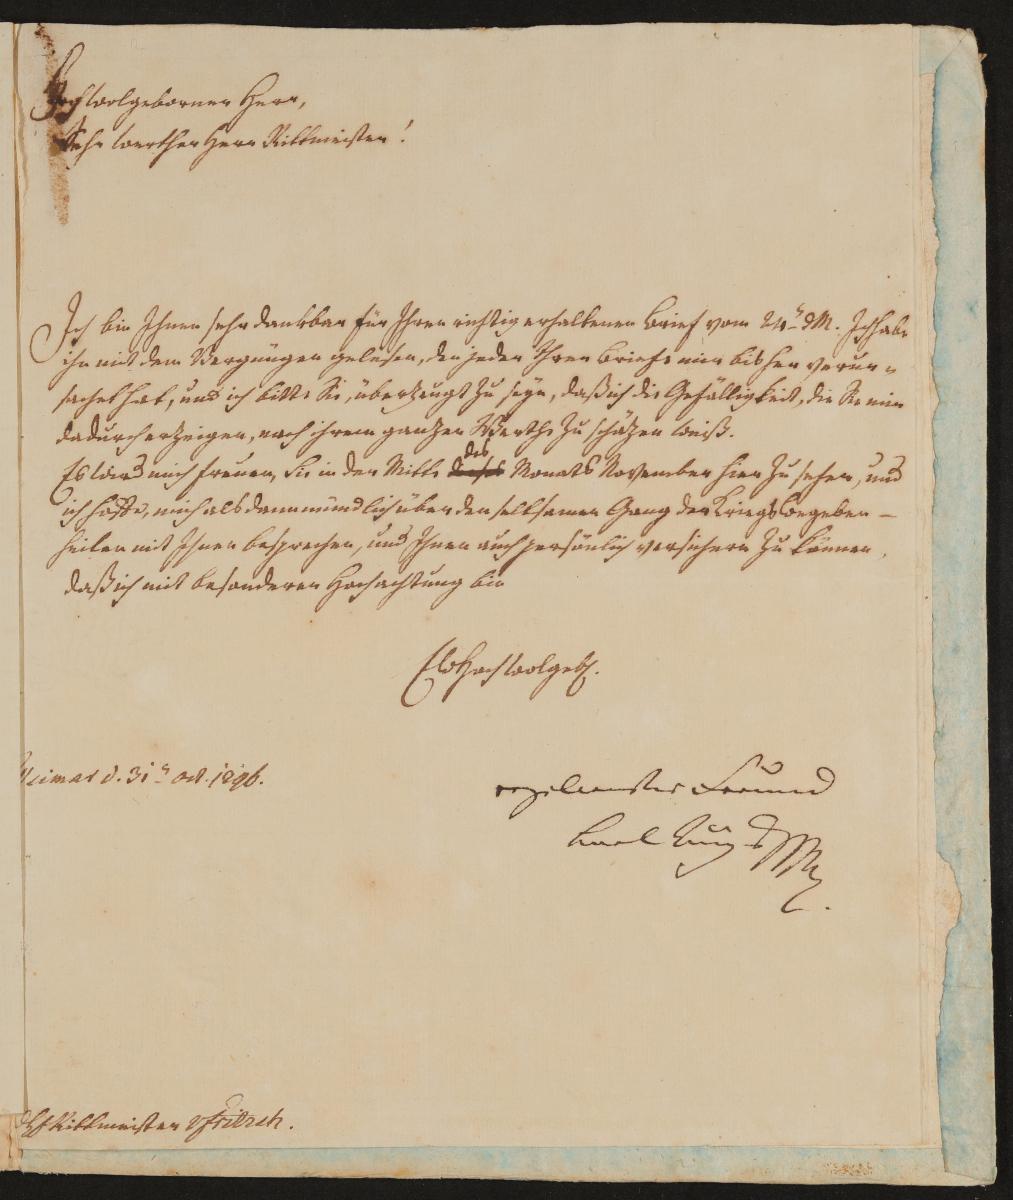 Hochwolgeborner Herr,
Sehr werther Herr Rittmeister!
Ich bin Ihnen sehr dankbar für Ihren richtig erhaltenen Brief vom 24n d M. Ich habe
ihn mit dem Vergnügen gelesen, den jeder Ihrer Briefe mir bisher verur-
sachet hat, und ich bitte Sie, überzeugt zu seyn, daß ich die Gefälligkeit, die Sie mir
dadurch erzeigen, nach ihrem ganzen Werthe zu schätzen weiß.
Es wird mich freuen, Sie in der Mitte des dieses Monats November hier zu sehen, und
ich hoffe, mich alsdann mündlich über den seltsamen Gang der Kriegsbegeben-
heiten mit Ihnen besprechen, und Ihnen auch persönlich versichern zu können,
daß ich mit besonderer Hochachtung bin
Ew Hochwolgeb.
Weimar d. 31n Oct. 1796.
ergebenster Freund
Carl August
Rittmeister v Fritzsch.